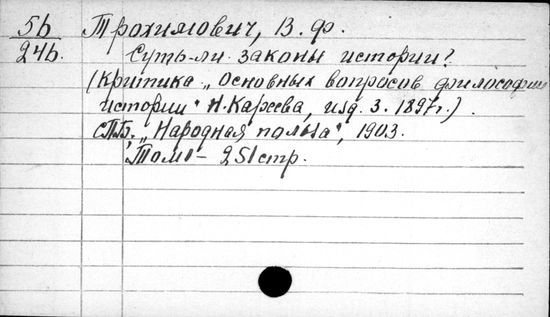 5б
24б.
Трохимович, В. Ф.
Суть-ли законы истории?
(Критика „Основных вопросов философии
истории" Н. Кареева, изд. 3. 1897 г.)
СПб. „Народная польза", 1903.
251 стр.